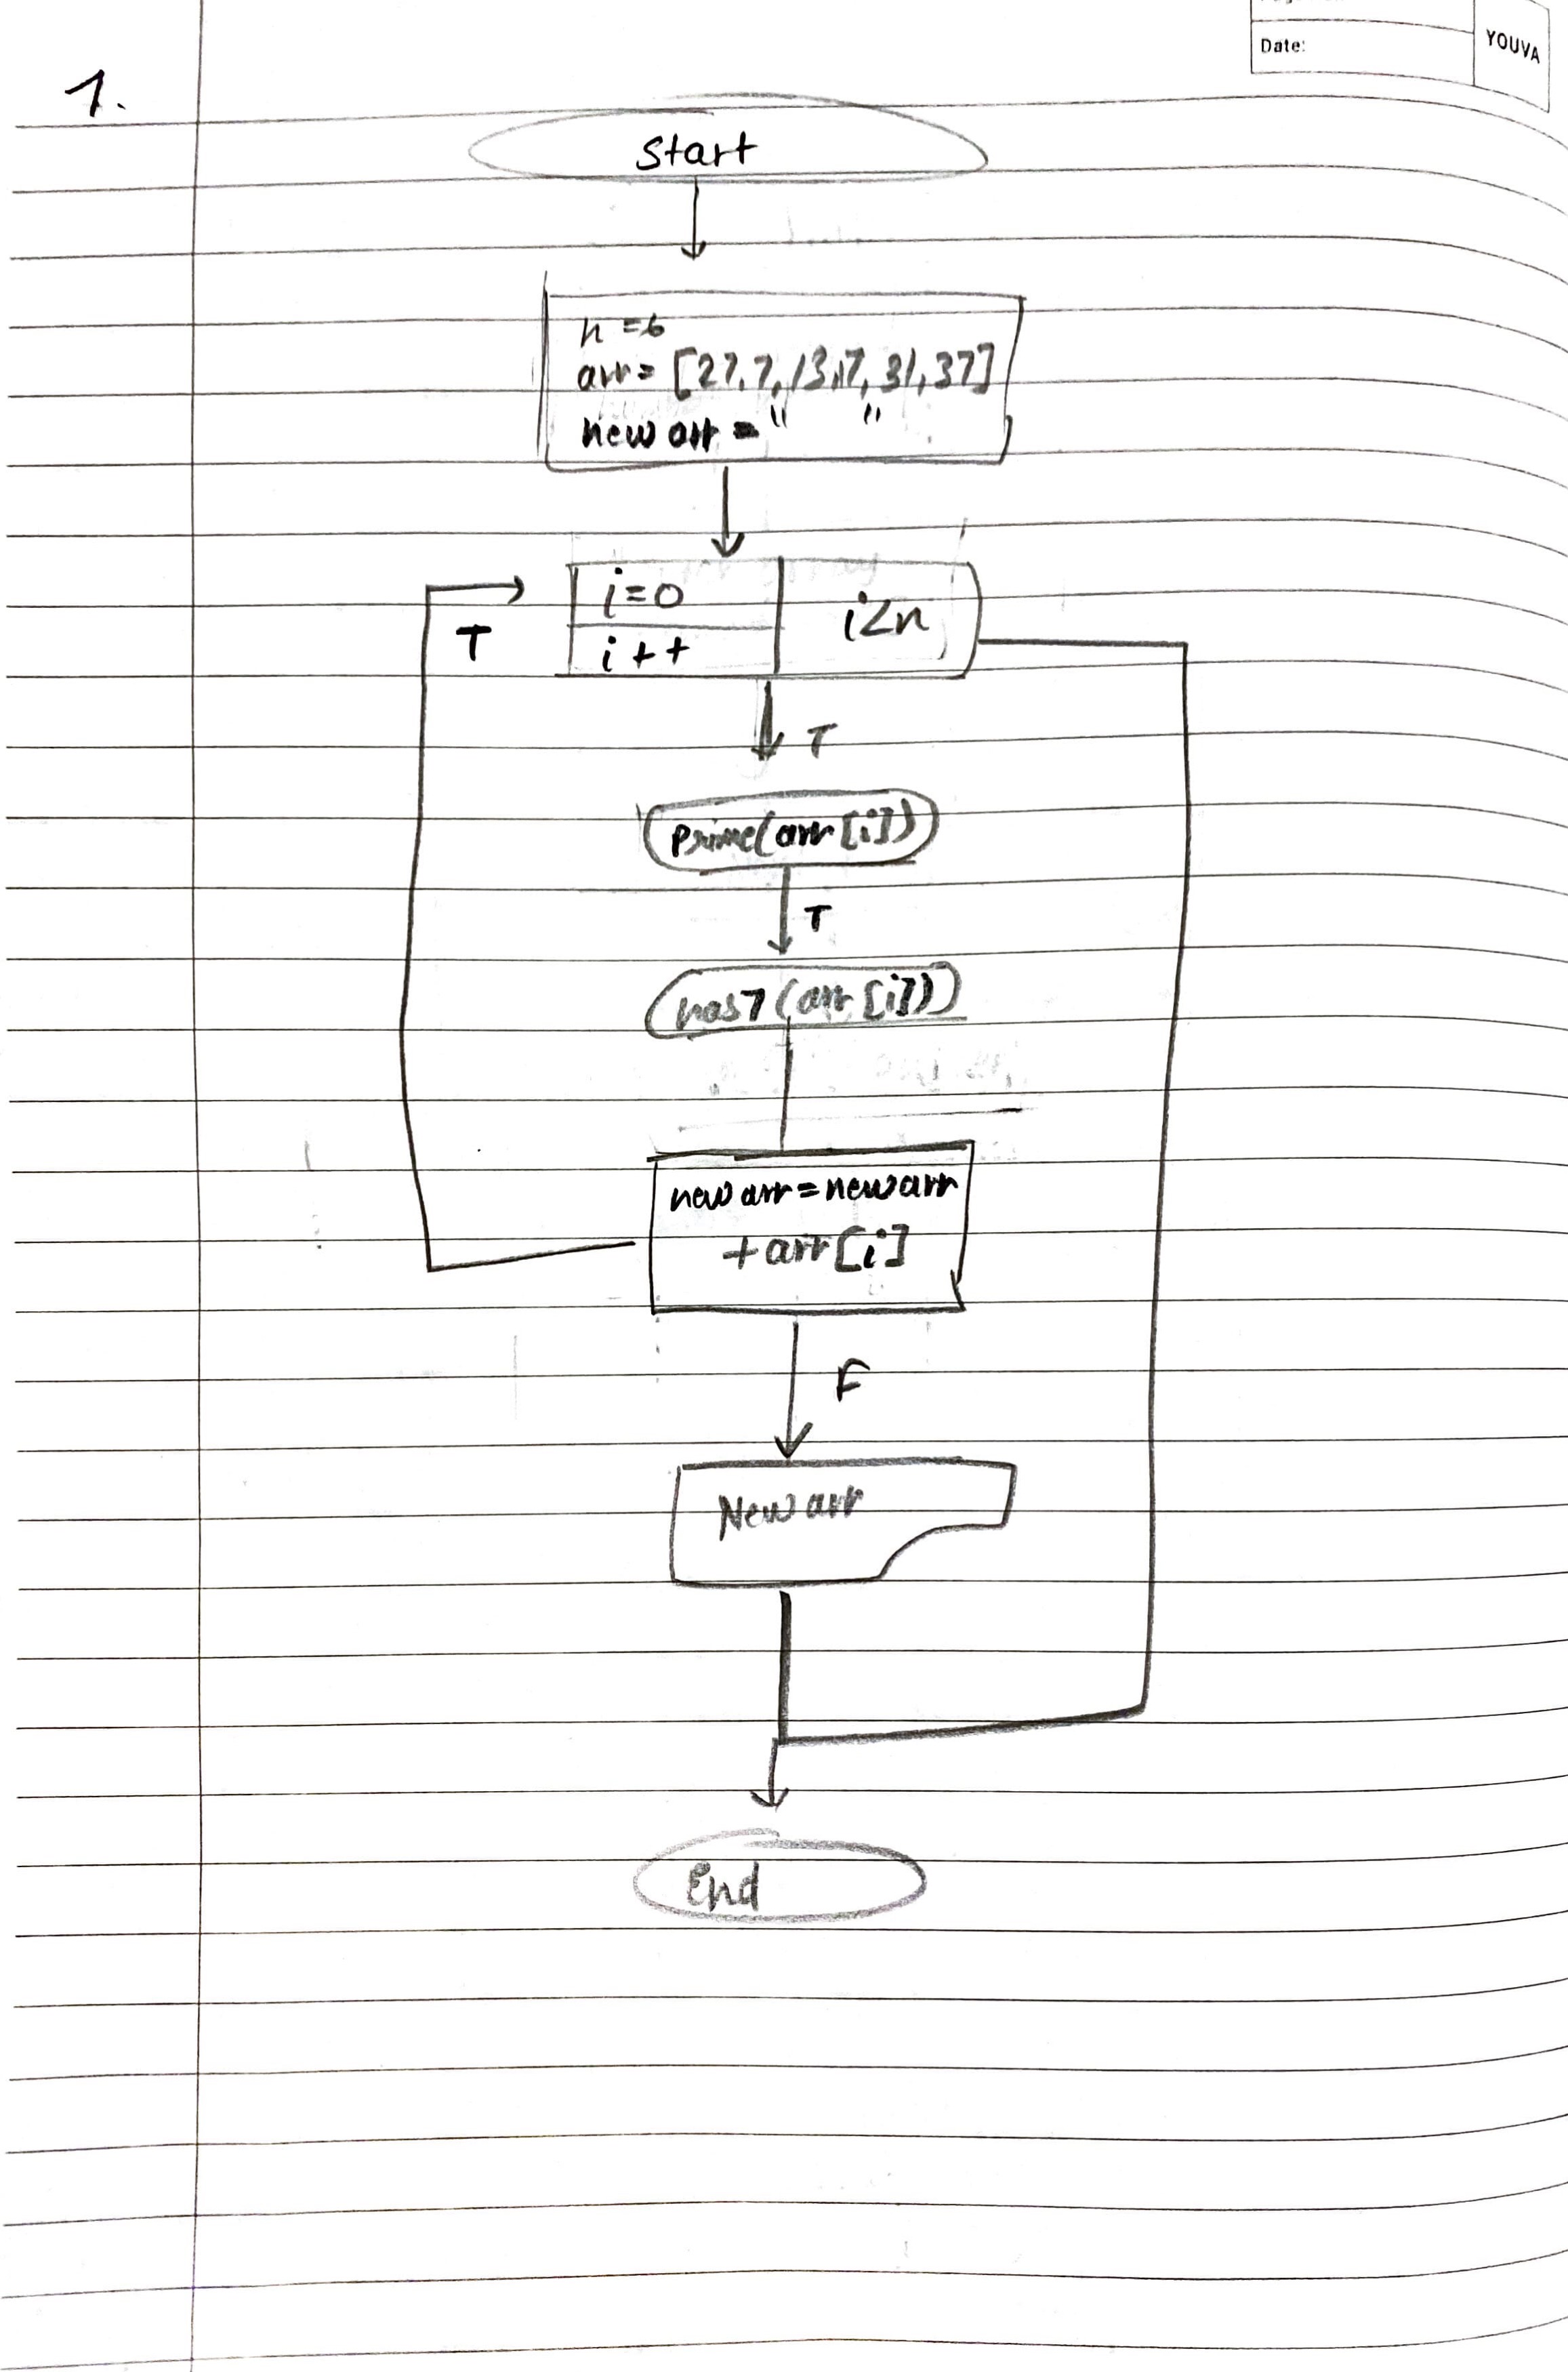 Date:
YOUVA
1.
Start
n = 6
arr = [27, 7, 13, 17, 31, 37]
new arr = " "
i=0
i<n
i++
T
T
prime(arr[i])
T
has7(arr[i])
new arr = new arr
+ arr[i]
F
New arr
End